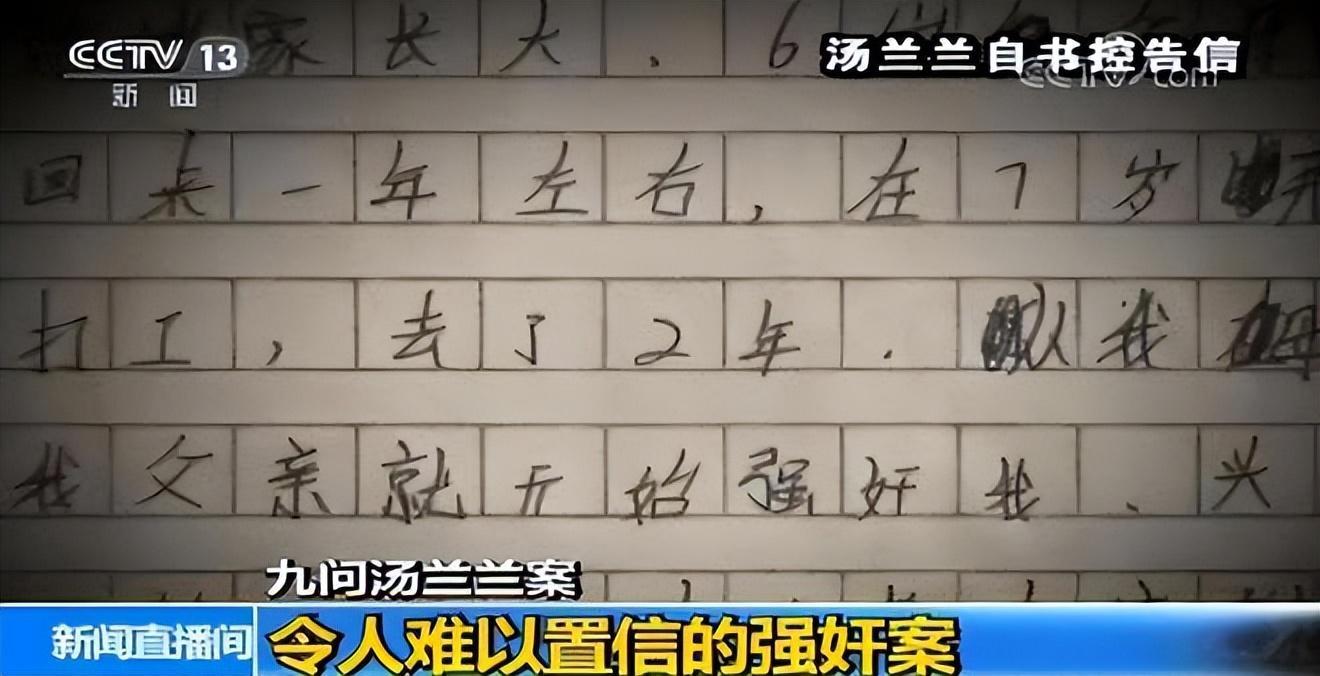 CCTV 13
新闻
汤兰兰自书控告信
CCTV.com
家长大.6岁
回来一年左右,在7岁
打工,去了2年.以我
我父亲就开始强奸我、兴
九问汤兰兰案
新闻直播间
令人难以置信的强奸案